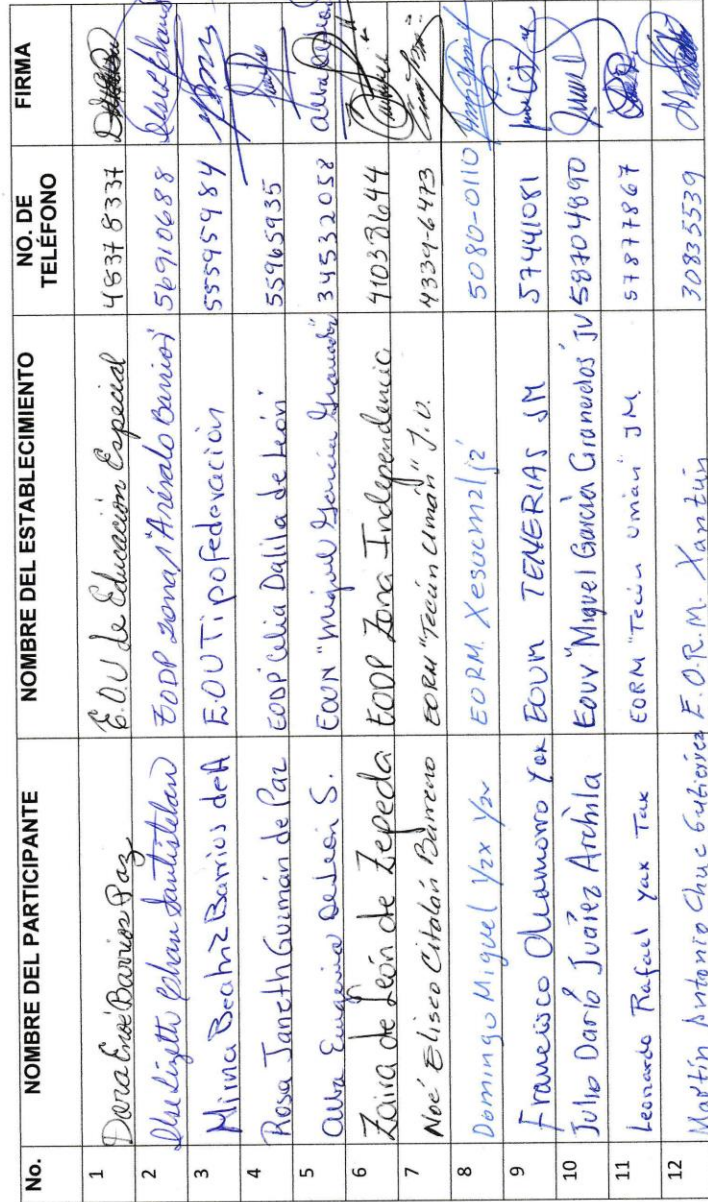 No. NOMBRE DEL PARTICIPANTE NOMBRE DEL ESTABLECIMIENTO NO. DE TELÉFONO FIRMA
1 Dora Eroé Barrios Paz E.O.U de Educación Especial 48378337
2 Lizeth Santisteban EODP zona 1 "Arévalo Barrios" 56910688
3 Mirna Beatriz Barrios de A E.O.U Tipo federación 55595984
4 Rosa Janeth Guzmán de Paz EODP Celia Dalila de León" 55965935
5 Alba Eugenia DeLeón S. EOUN "Miguel García Granados" 34532058
6 Zaira de León de Zepeda EODP Zona Independencia 41038644
7 Noé Eliseo Citalán Barreno EORM "Tecún Umán" J.V. 4339-6473
8 Domingo Miguel Yax Yax EORM. Xesuc 5080-0110
9 Francisco Chamorro Yax EOUM TENERIAS JM 57441081
10 Julio Darío Juárez Archila EOUV "Miguel García Granados" JV 58704890
11 Leonardo Rafael Yax Tax EORM "Tecún Umán" JM. 57877867
12 Martín Antonio Chuc Gutiérrez E.O.R.M. Xantún 30835539